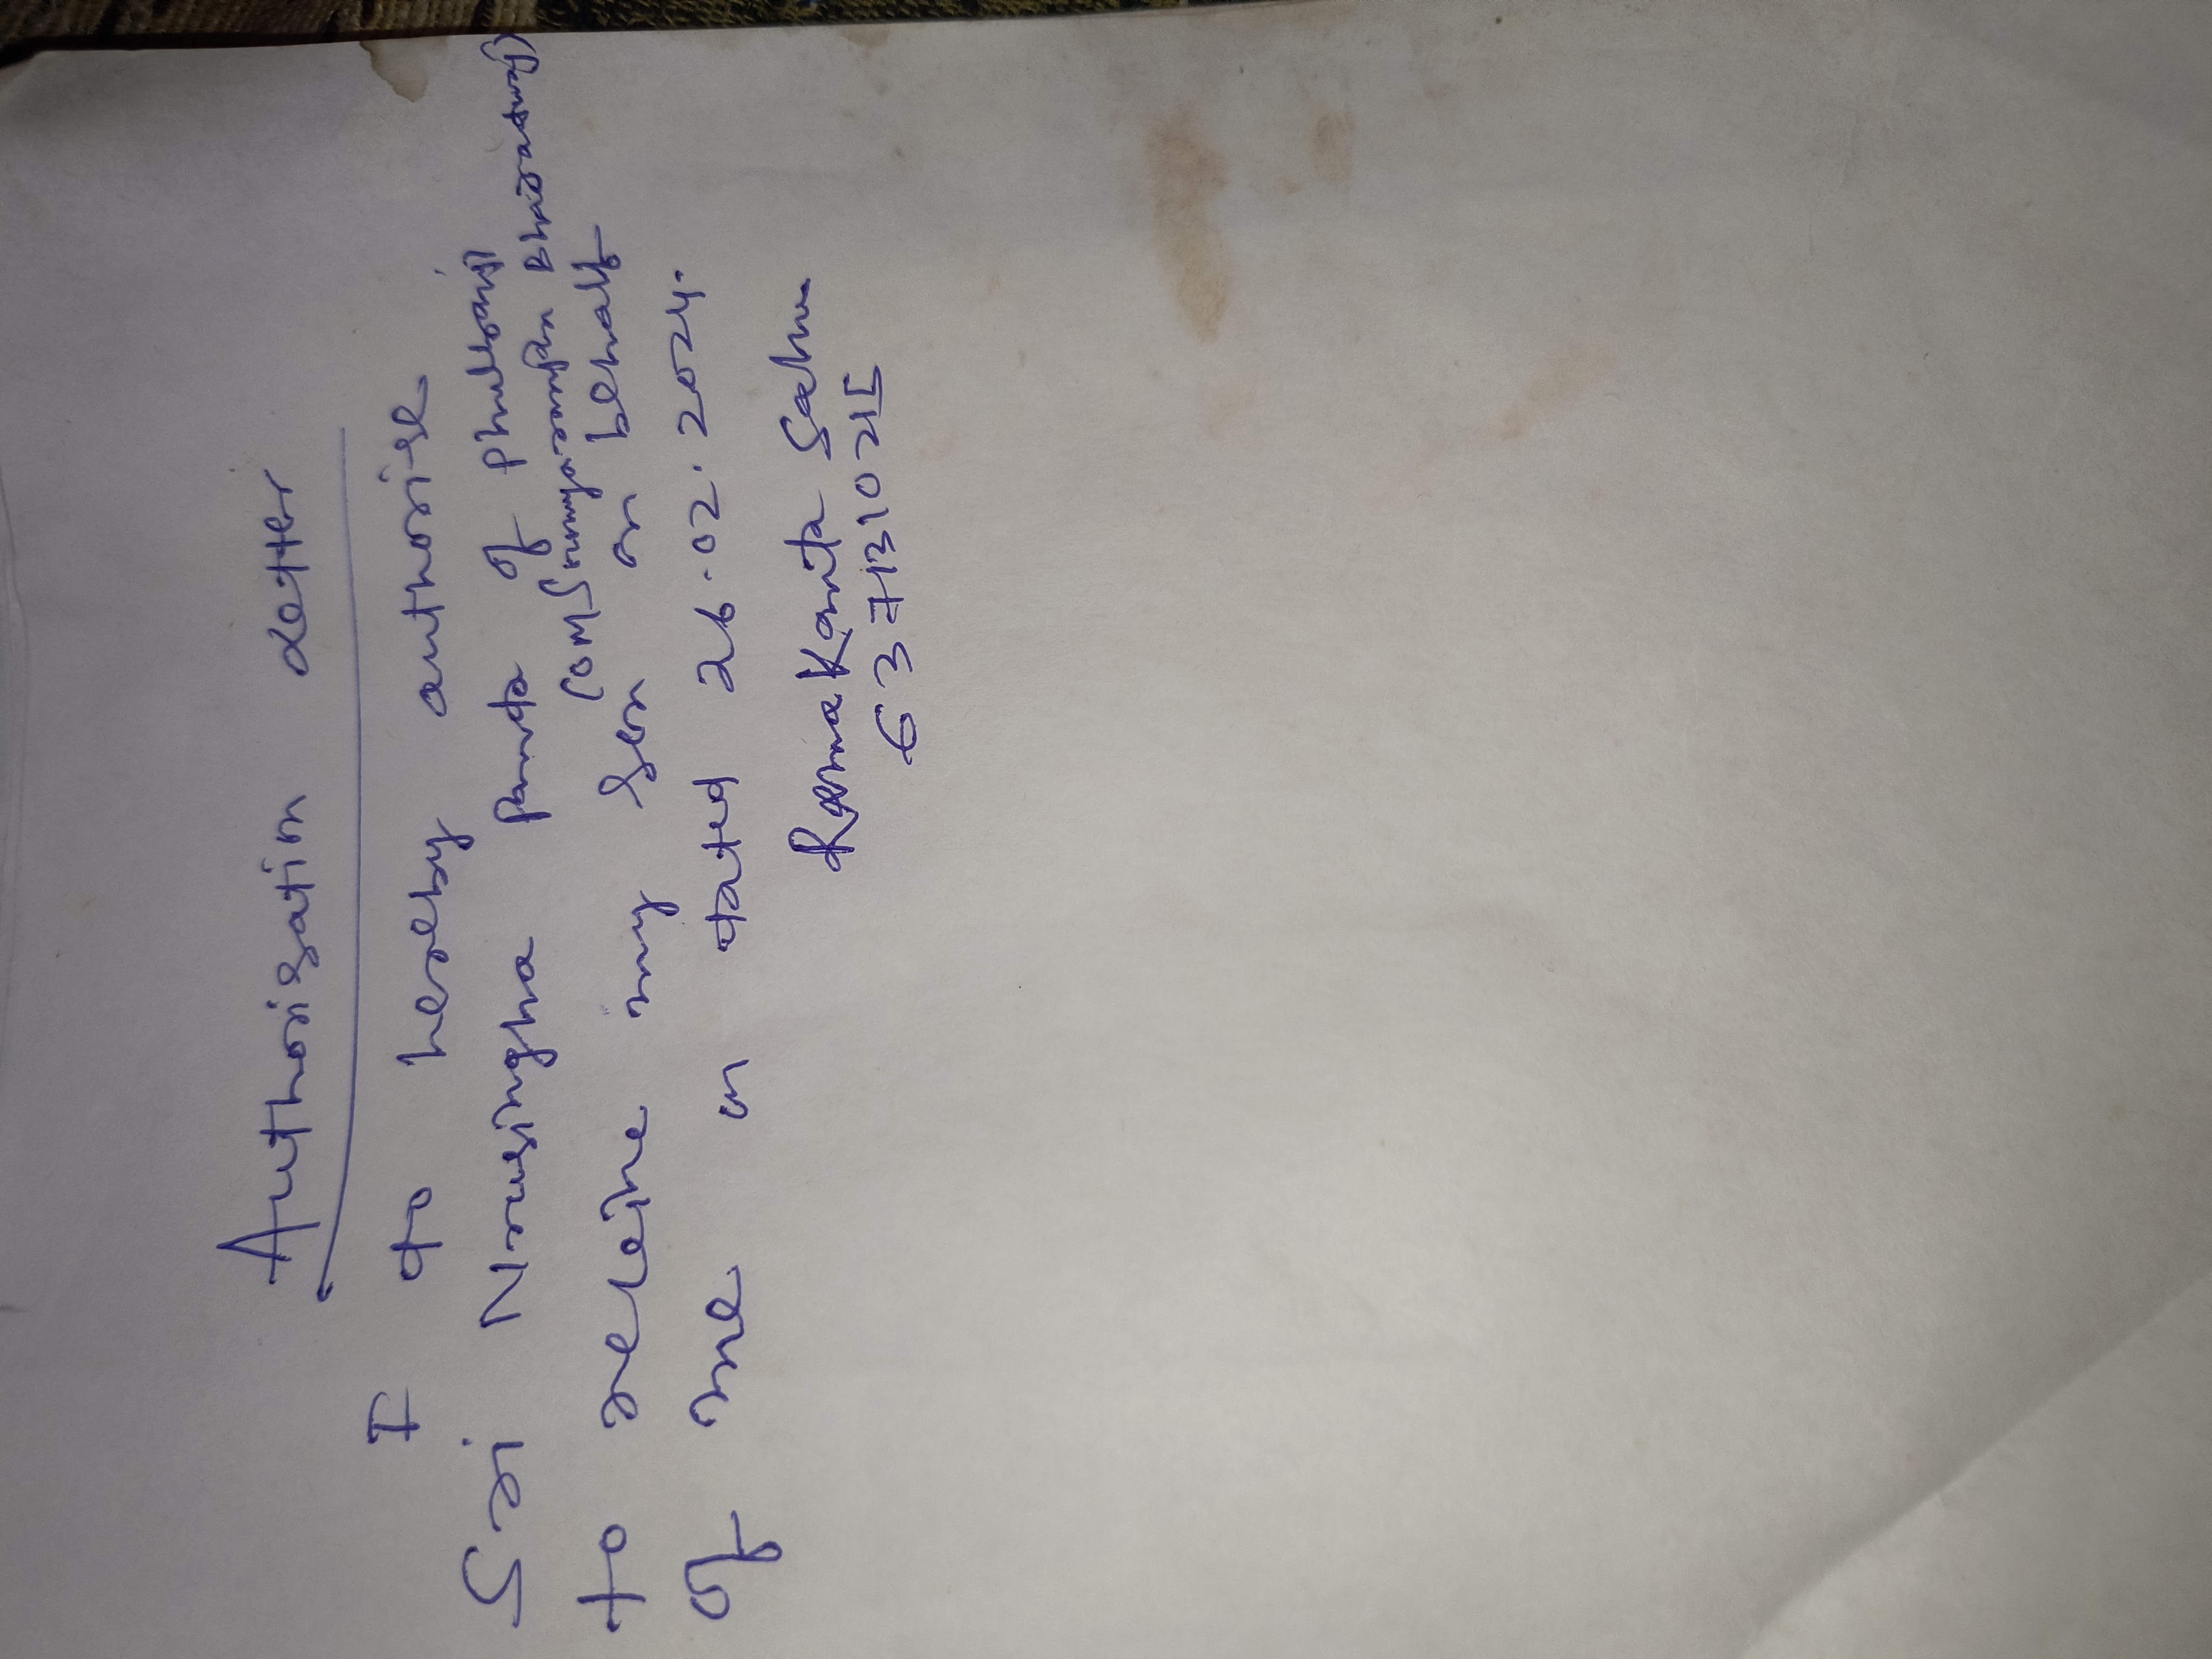 Authorisation Letter
I do hereby authorise
Sri Nrusingha Panda of Phulbani
to recieve my Son on behalf
of me on dated 26.02.2024.
RamaKanta Sahu
6371310215